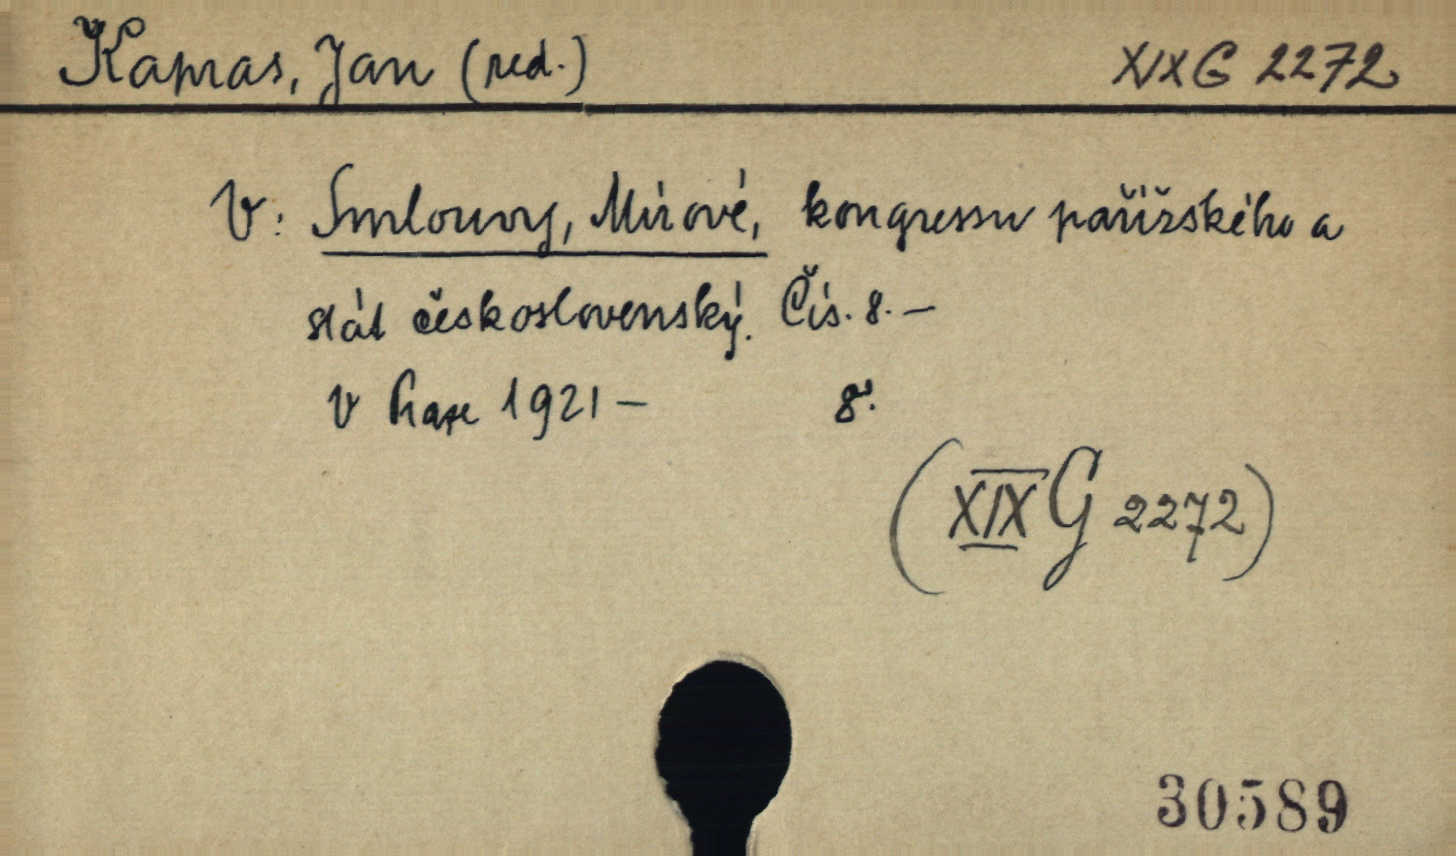 Kapras, Jan (red.) XIX G 2272
V: Smlouvy, Mírové, kongressu pařížského a
stát československý. Čís. 8. —
V Praze 1921 — 8°.
(XIX G 2272)
30589